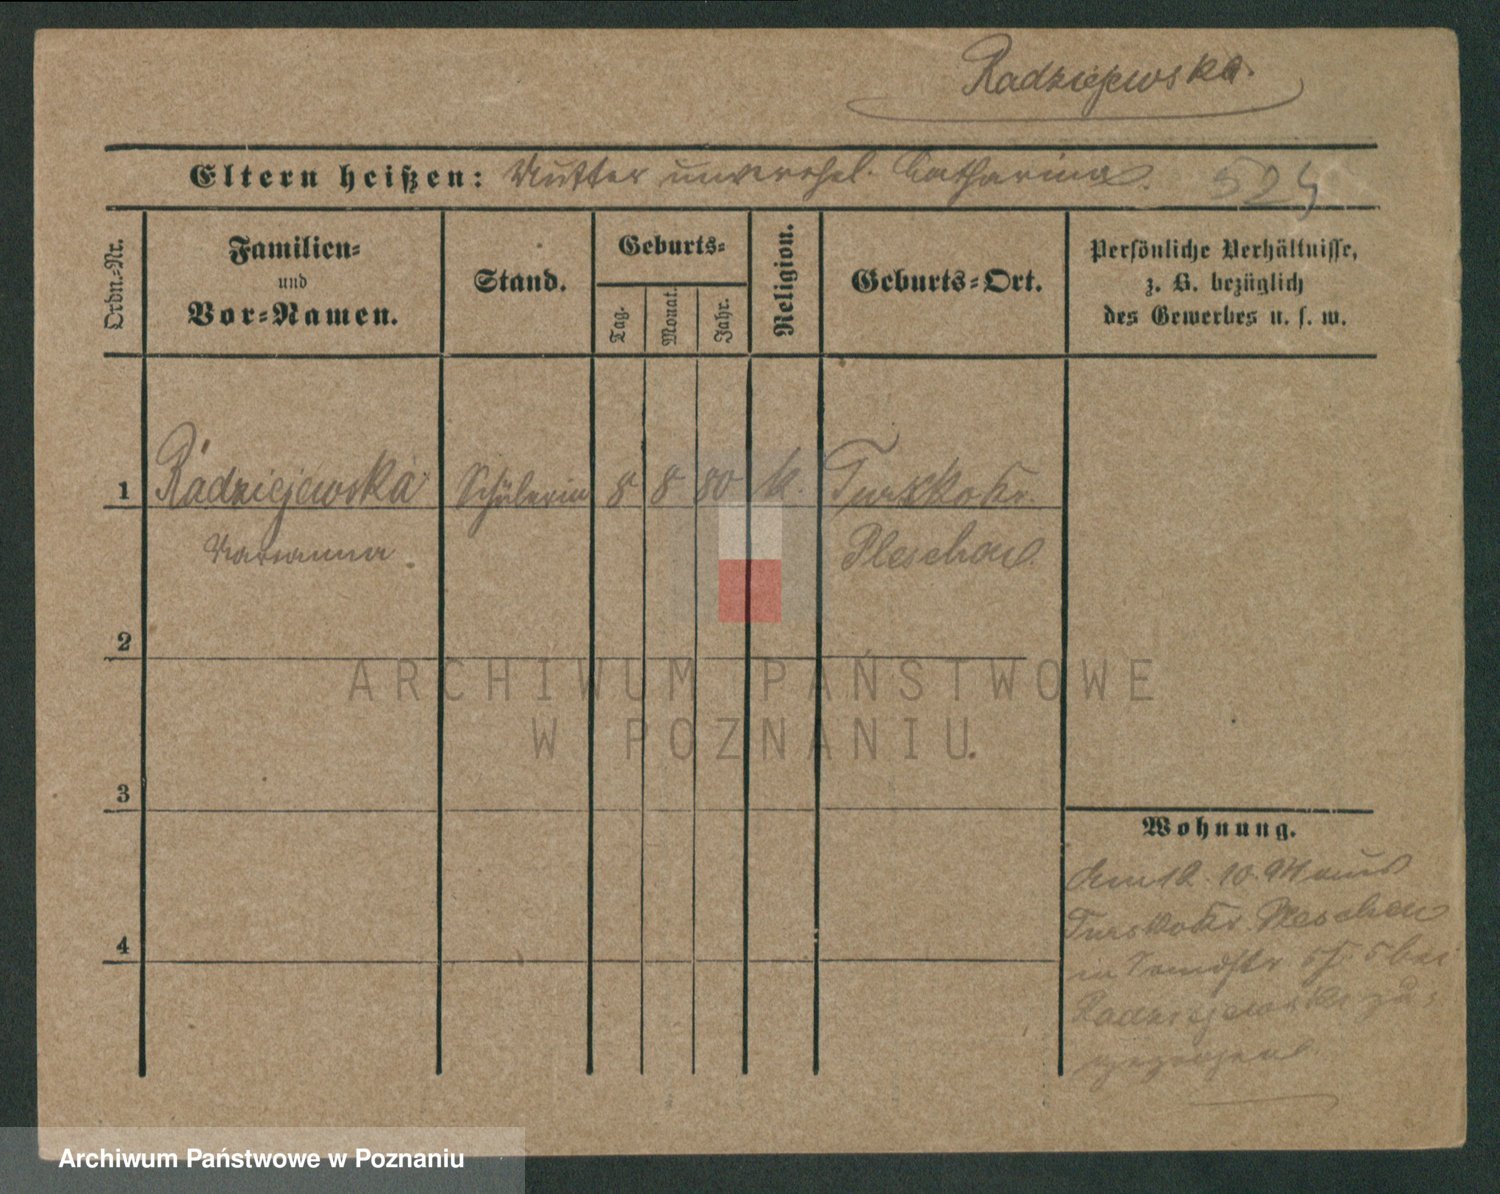 Radziejewska.
Eltern heißen: Mutter unverehel. Catharina. 524
Ordn.-Nr.
Familien-
und
Vor-Namen.
Stand.
Geburts-
Tag.
Monat.
Jahr.
Religion.
Geburts-Ort.
Persönliche Verhältnisse,
z. B. bezüglich
des Gewerbes u. s. w.
1 Radziejewska Schülerin 8 8 80 k. Tursko Kr.
Marianna Pleschen.
2
3
4
Wohnung.
Am 12. 10. 94 aus
Tursko Kr. Pleschen
in bei
Radziejewski zu-
gezogen.
ARCHIWUM PAŃSTWOWE
W POZNANIU
Archiwum Państwowe w Poznaniu